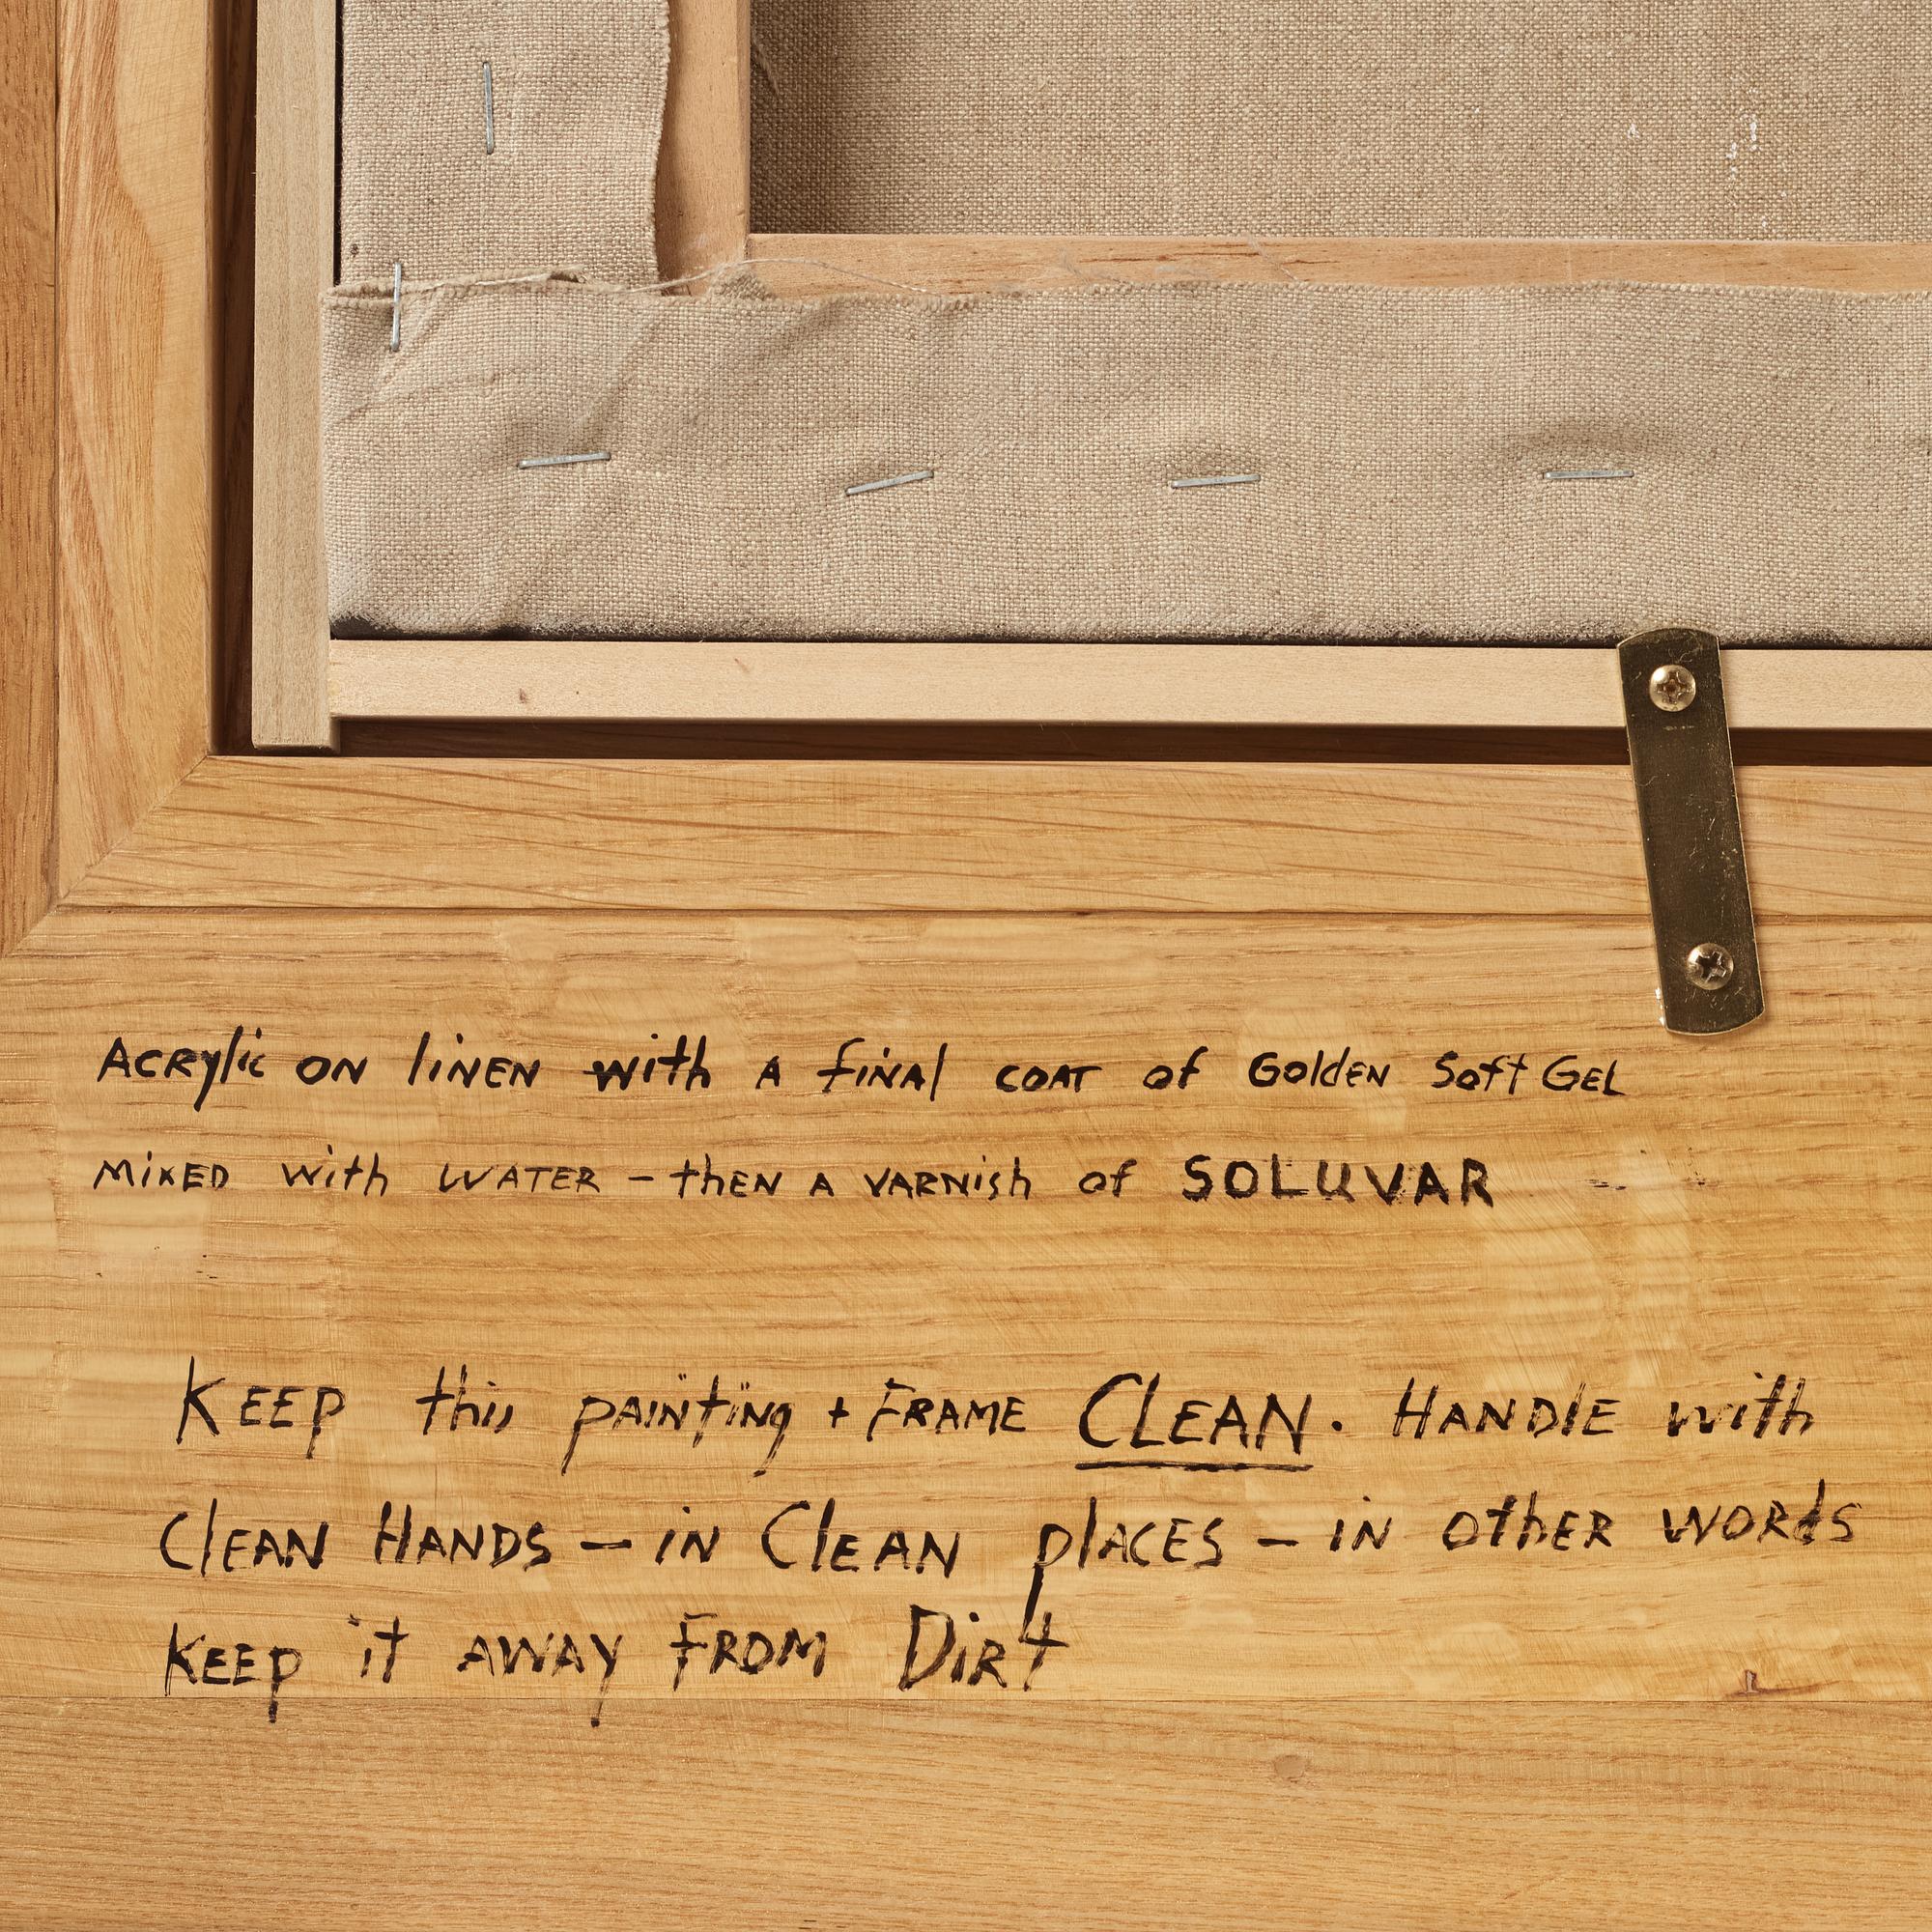 Acrylic on linen with a final coat of Golden Soft Gel
mixed with water – then a varnish of SOLUVAR
Keep this painting + Frame CLEAN. Handle with
Clean Hands – in Clean places – in other words
Keep it away from Dirt